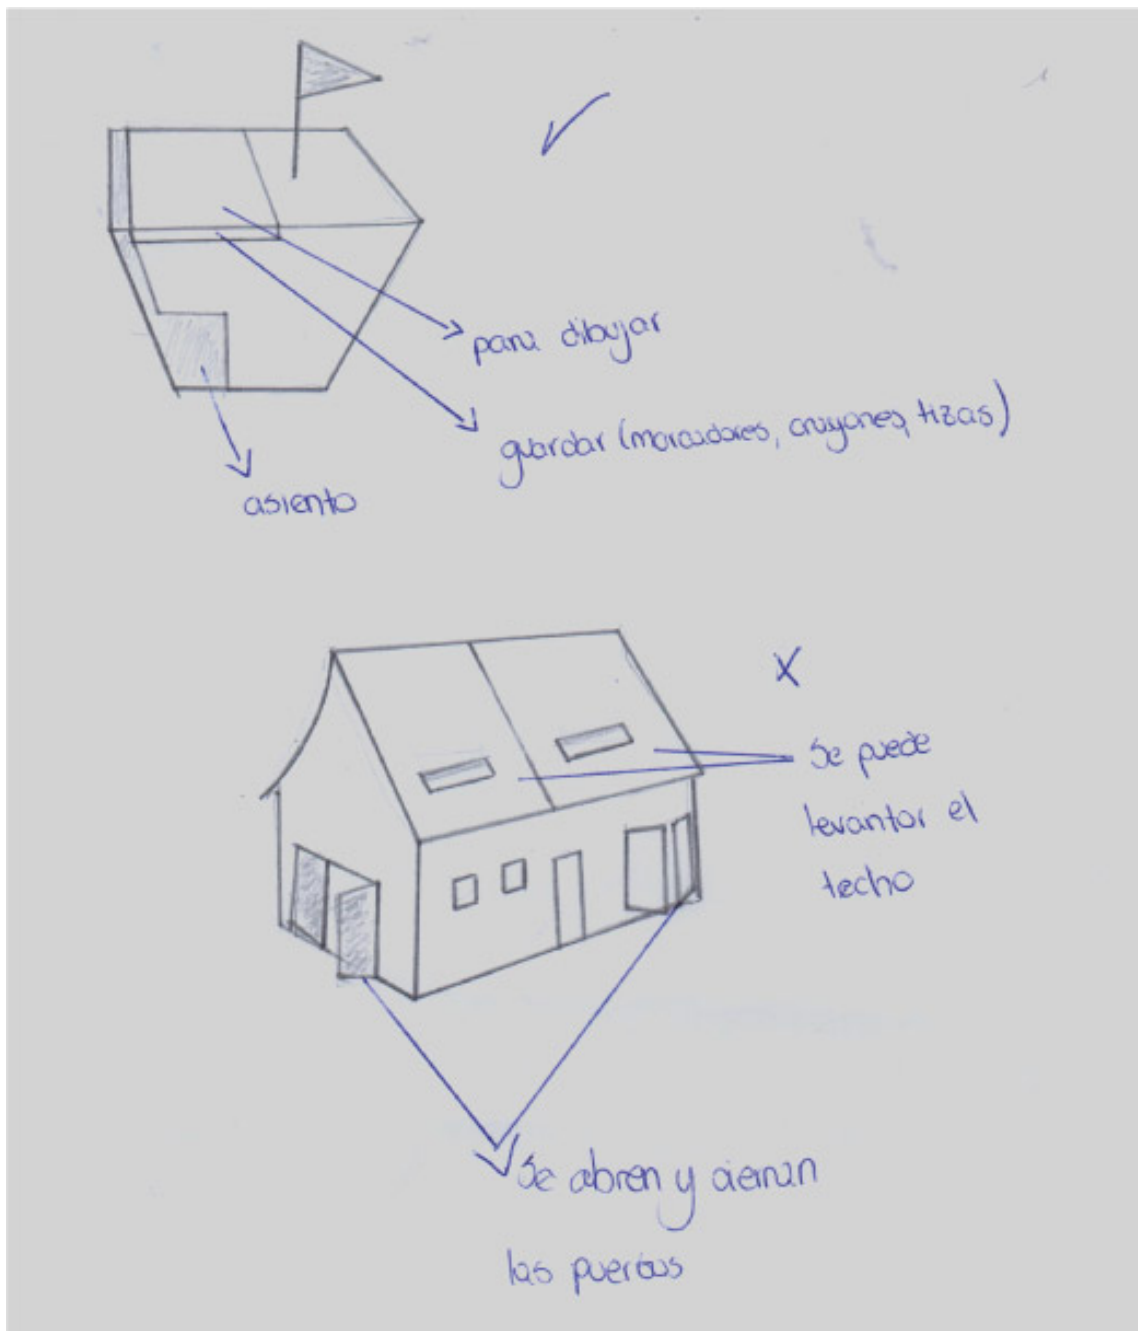 para dibujar
guardar (marcadores, crayones, tizas)
asiento
Se puede
levantar el
techo
Se abren y cierran
las puertas